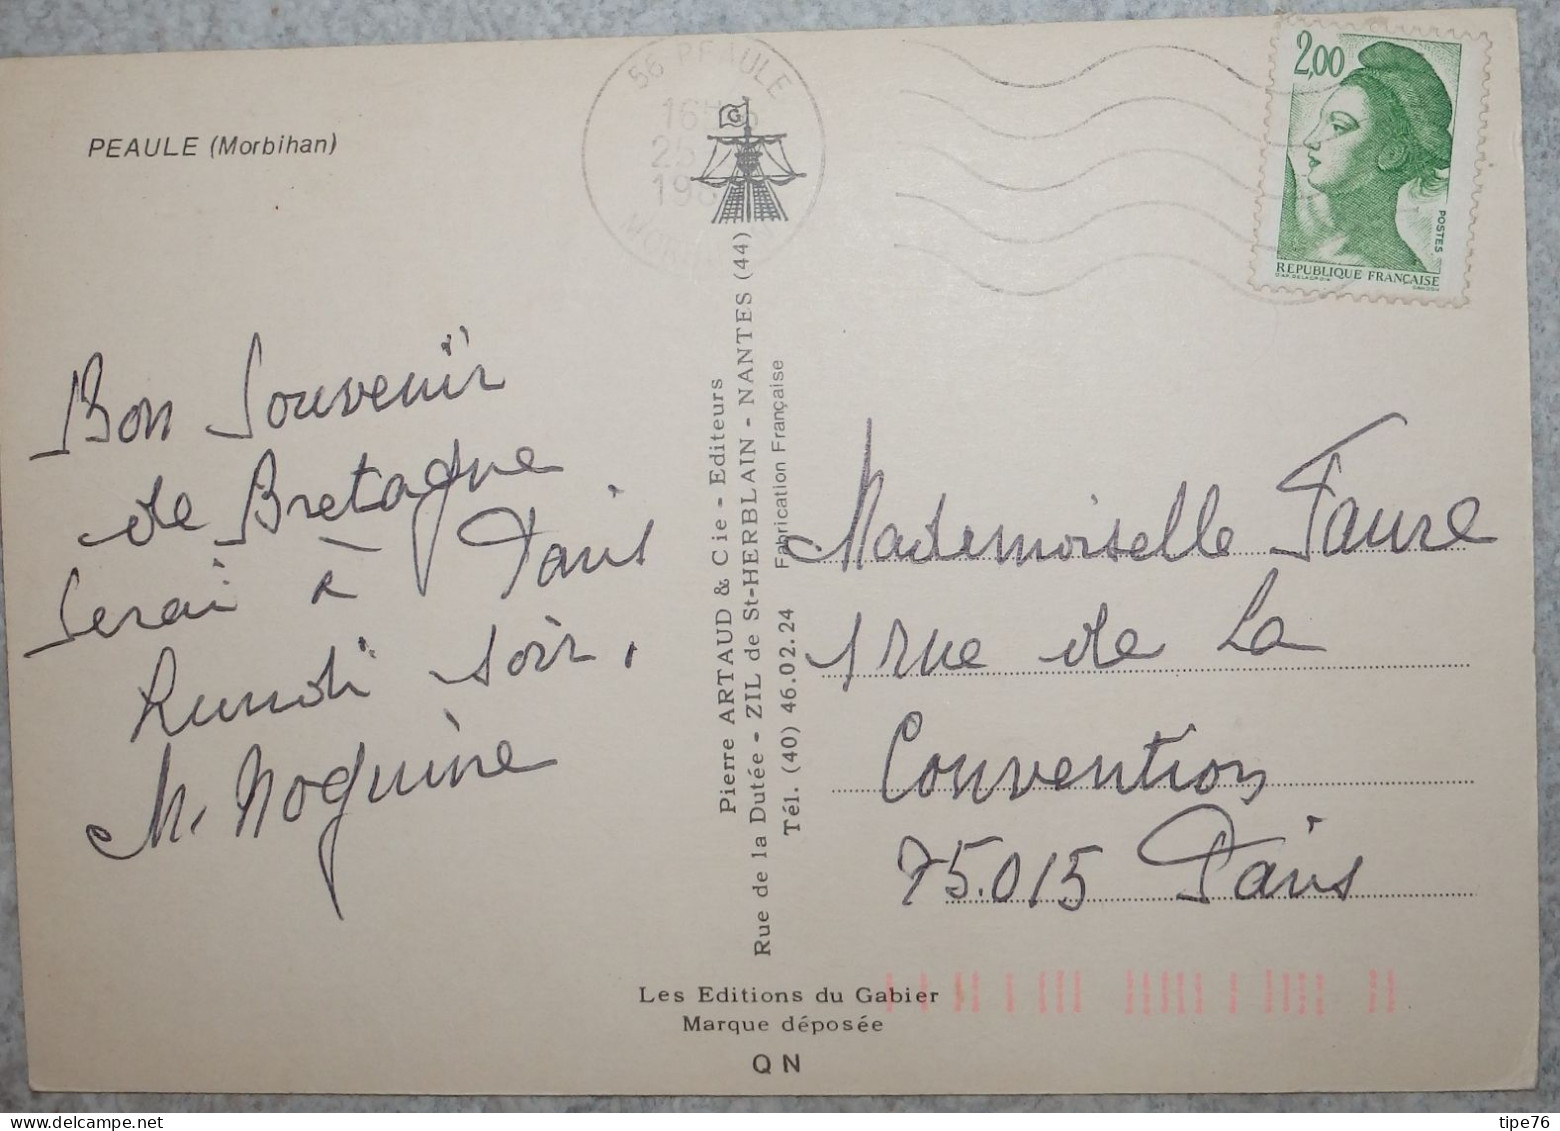 PEAULE (Morbihan)
56 PEAULE
16H
25
19
MORBIHAN
G
2,00
POSTES
REPUBLIQUE FRANÇAISE
Bon Souvenir
de Bretagne
Serai à Paris
Lundi soir.
M. Noguine
Pierre ARTAUD & Cie - Editeurs
Rue de la Dutée - ZIL de St-HERBLAIN - NANTES (44)
Tél. (40) 46.02.24 Fabrication Française
Mademoiselle Faure
1 rue de La
Convention
75.015 Paris
Les Editions du Gabier
Marque déposée
QN
www.delcampe.net
tipe76